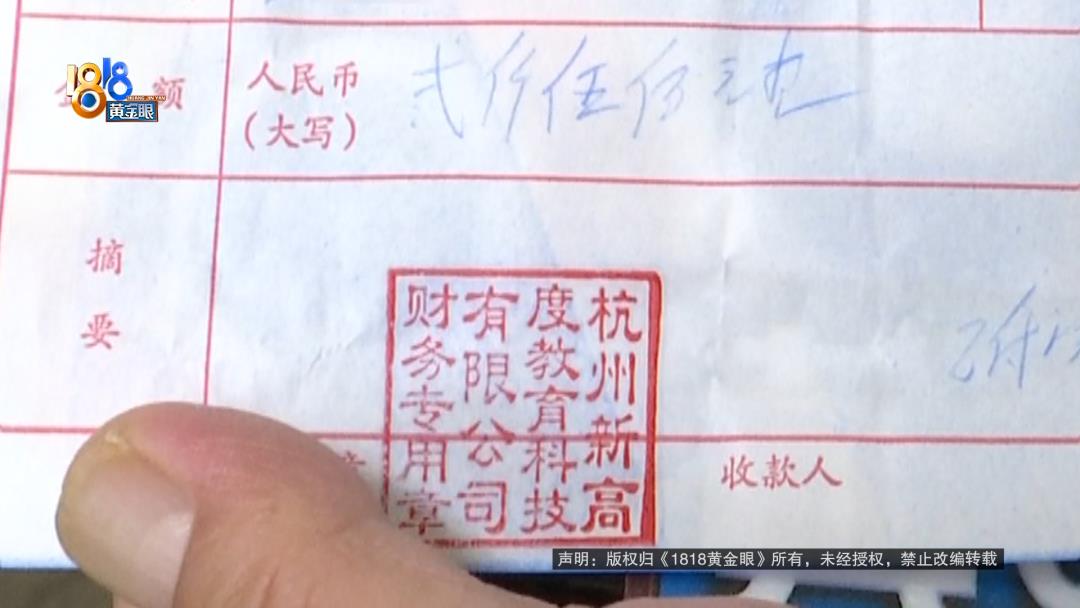 1818
HUANG JIN YAN
黄金眼
额
人民币
(大写)
贰仟伍佰元
摘
要
杭州新高
度教育科技
有限公司
财务专用章
收款人
声明:版权归《1818黄金眼》所有,未经授权,禁止改编转载